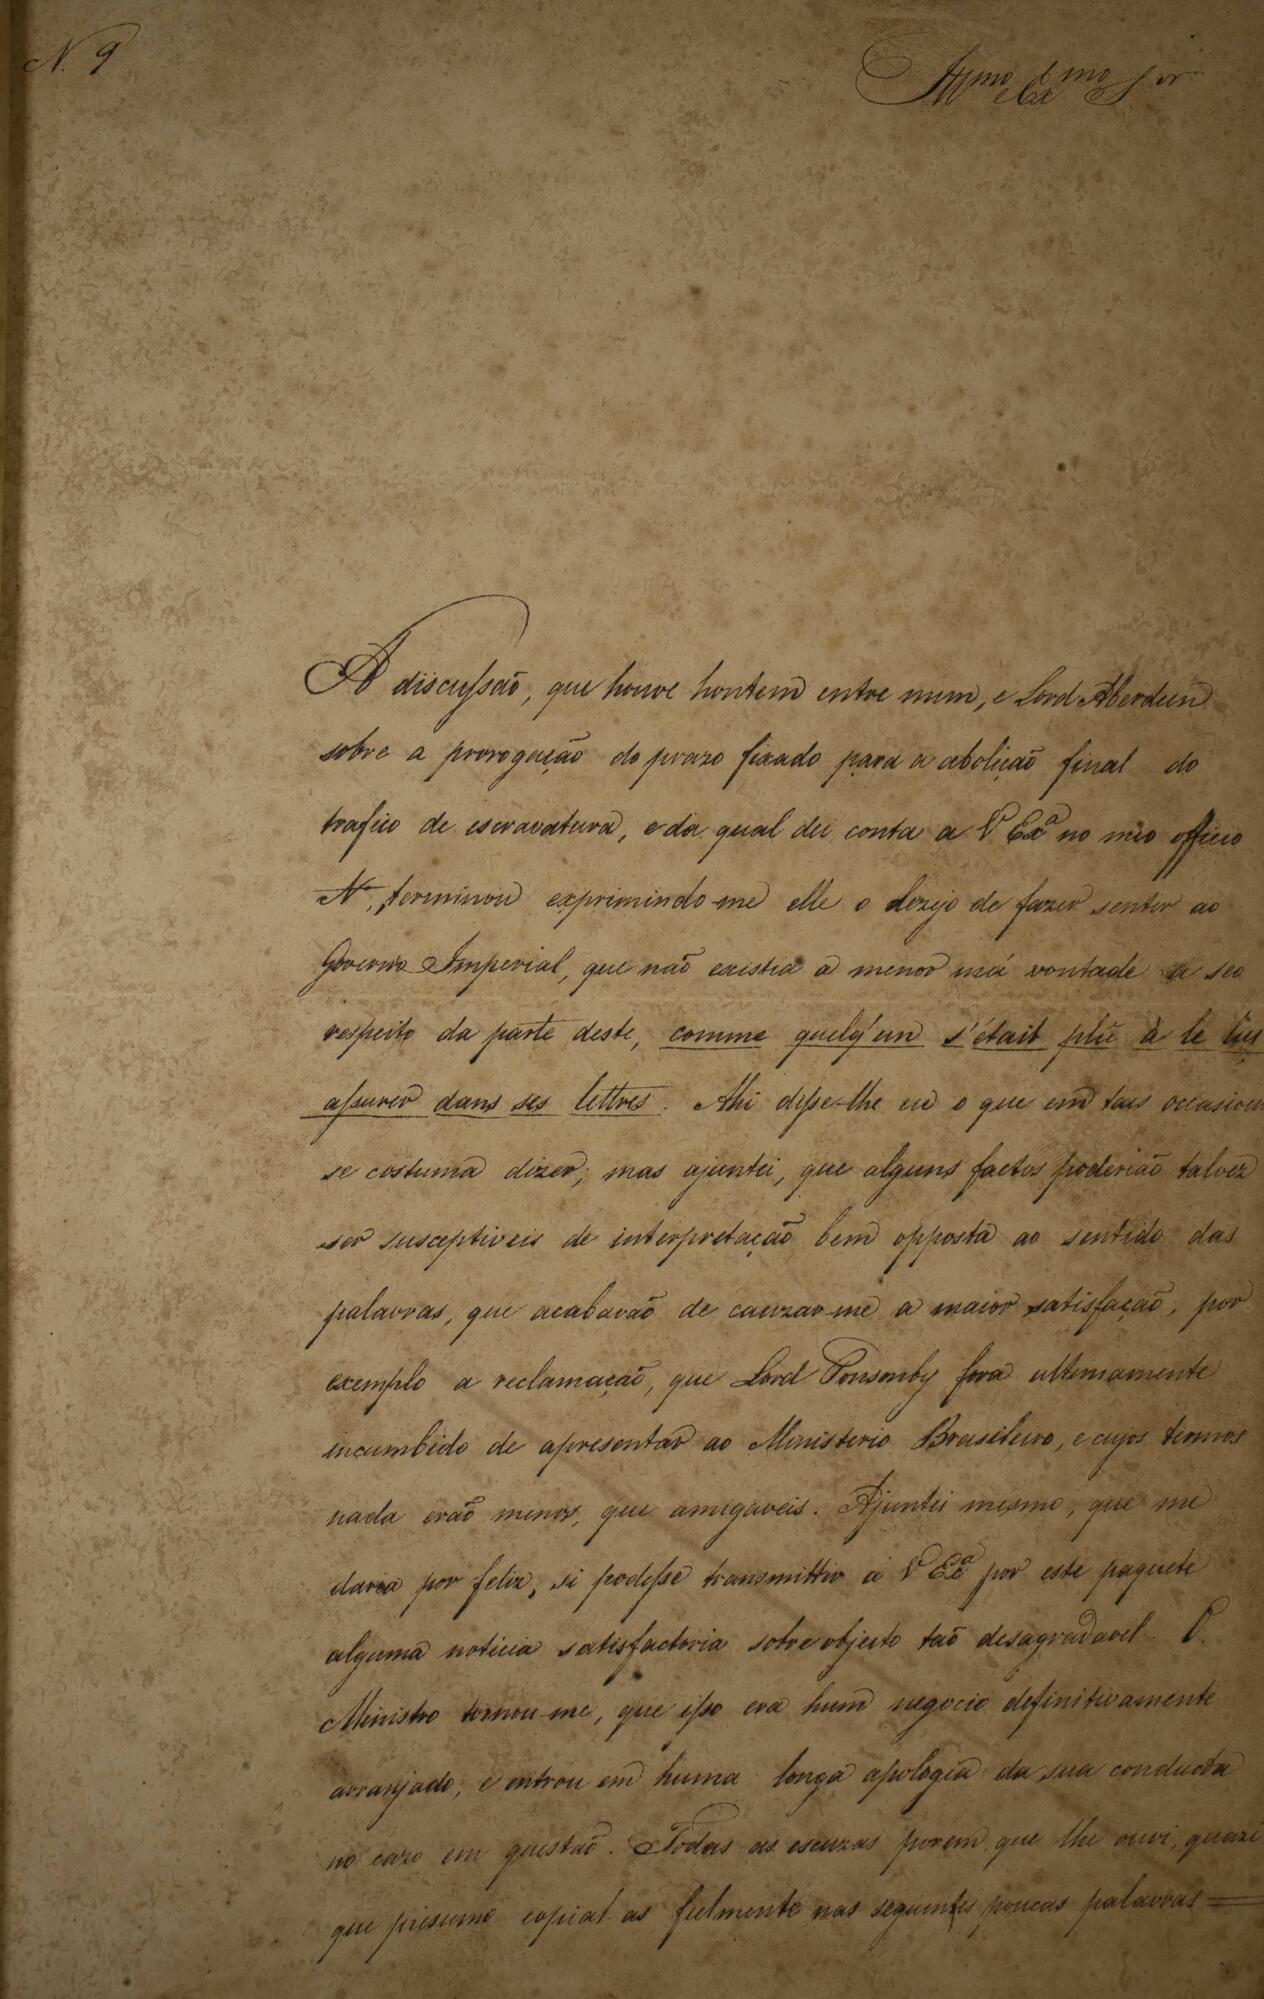 N. 9
Illmo e Exmo Snr
A discussão, que houve hontem entre mim, e Lord Aberdeen
sobre a prorogação do prazo fixado para a abolição final do
trafico de escravatura, e da qual dei conta a V Exa no meo officio
No, terminou exprimindo-me elle o dezejo de fazer sentir ao
Governo Imperial, que não existia a menor má vontade a seo
respeito da parte deste, comme quelqu'un s'était plû à le lui
assurer dans ses lettres. Ahi disse-lhe eu o que em taes occasioens
se costuma dizer; mas ajuntei, que alguns factos poderião talvez
ser susceptiveis de interpretação bem opposta ao sentido das
palavras, que acabavão de cauzar-me a maior satisfação, por
exemplo a reclamação, que Lord Ponsonby fora ultimamente
incumbido de apresentar ao Ministerio Brasileiro, e cujos termos
nada erão menos, que amigaveis. Ajuntei mesmo, que me
daria por feliz, si podesse transmittir a V Exa por este paquete
alguma noticia satisfactoria sobre objecto tão desagradavel. O
Ministro tornou-me, que isso era hum negocio definitivamente
arranjado, e entrou em huma longa apologia da sua conducta
no cazo em questão. Todas as escuzas porem, que lhe ouvi, quazi
que presumo copial-as fielmente nas seguintes poucas palavras =